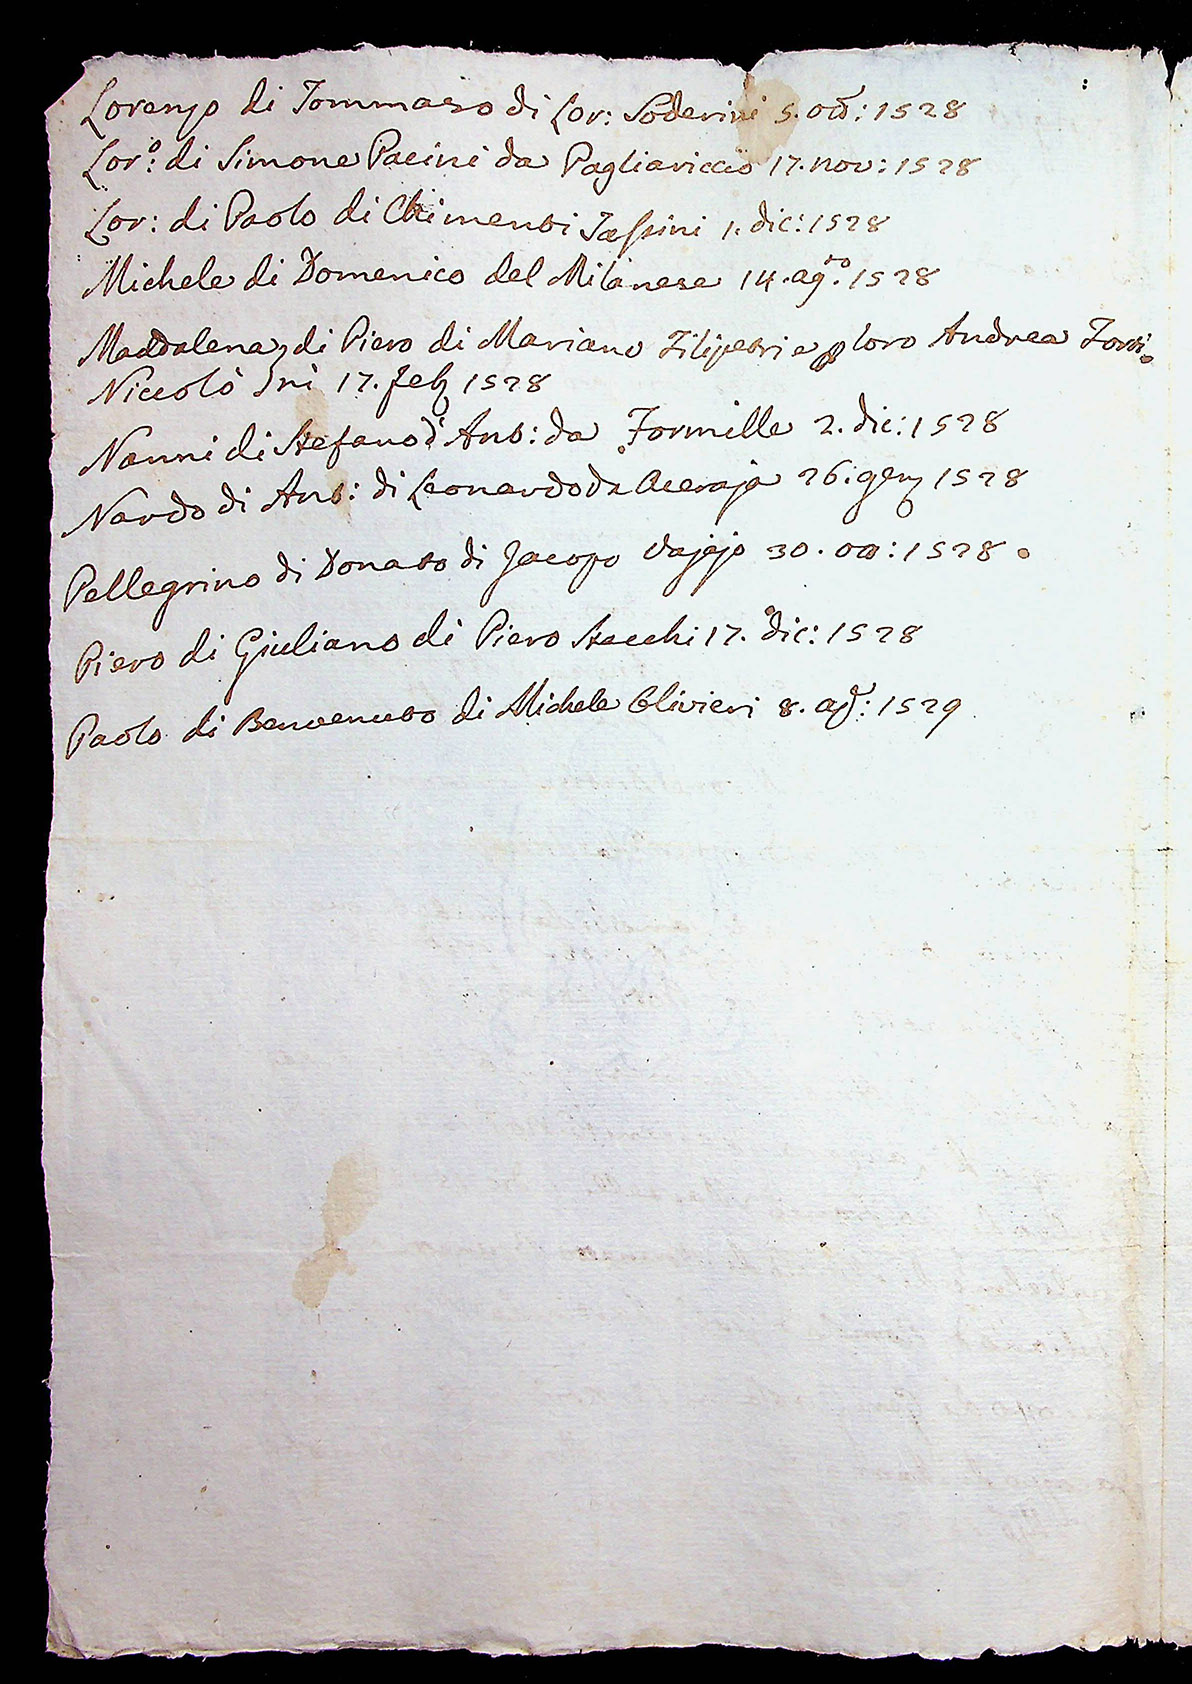 Lorenzo di Tommaso di Lor: Soderini 5. ott: 1528
Lor:º di Simone Pacini da Pagliariccio 17. nov: 1528
Lor: di Paolo di Chimenti Tassini 1. dic: 1528
Michele di Domenico del Milanese 14. ag.to 1528
Maddalena di Piero di Mariano Filipetri e p loro Andrea Torri
Niccolò ni 17. feb 1528
Nanni di Stefano d'Ant: da Tormille 2. dic: 1528
Nardo di Ant: di Leonardo da Aceraja 26. gen 1528
Pellegrino di Donato di Jacopo Vajajo 30. ott: 1528.
Piero di Giuliano di Piero Stecchi 17. dic: 1528
Paolo di Benvenuto di Michele Olivieri 8. ag: 1529